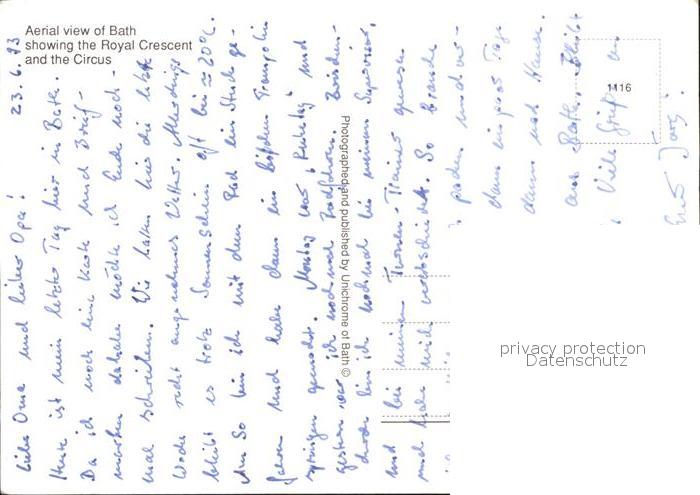 Aerial view of Bath
showing the Royal Crescent
and the Circus
1116
Photographed and published by Unichrome of Bath ©
privacy protection
Datenschutz
23.6.93
Liebe Oma und lieber Opa!
Heute ist mein letzter Tag hier in Bath.
Da ich noch eine Karte und Brief-
marken dahabe möchte ich Euch noch-
mal schreiben. Wir hatten hier die letzte
Woche recht angenehmes Wetter. Allerdings
bleibt es trotz Sonnenschein oft bei ≈ 20°C.
So bin ich mit dem Rad ein Stück ge-
fahren und habe dann ein bißchen Trampolin
springen gemacht. Montag war "Ruhetag" und
gestern war ich nochmal Radfahren. Zwischen-
durch bin ich nochmal bei meinem Supervisor,
und bei meinen Turnen-Trainer gewesen
und habe mich verabschiedet. So
packen und
dann ein paar Tage
dann nach Hause.
aus Bath.
Viele Grüße an
Euer Jörg!